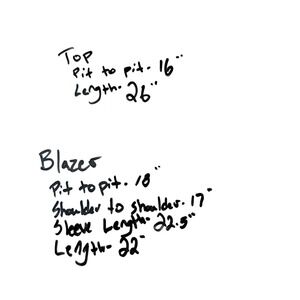 Top
Pit to pit- 16"
Length- 26"
Blazer
Pit to pit- 18"
Shoulder to shoulder- 17"
Sleeve Length- 22.5"
Length- 22"